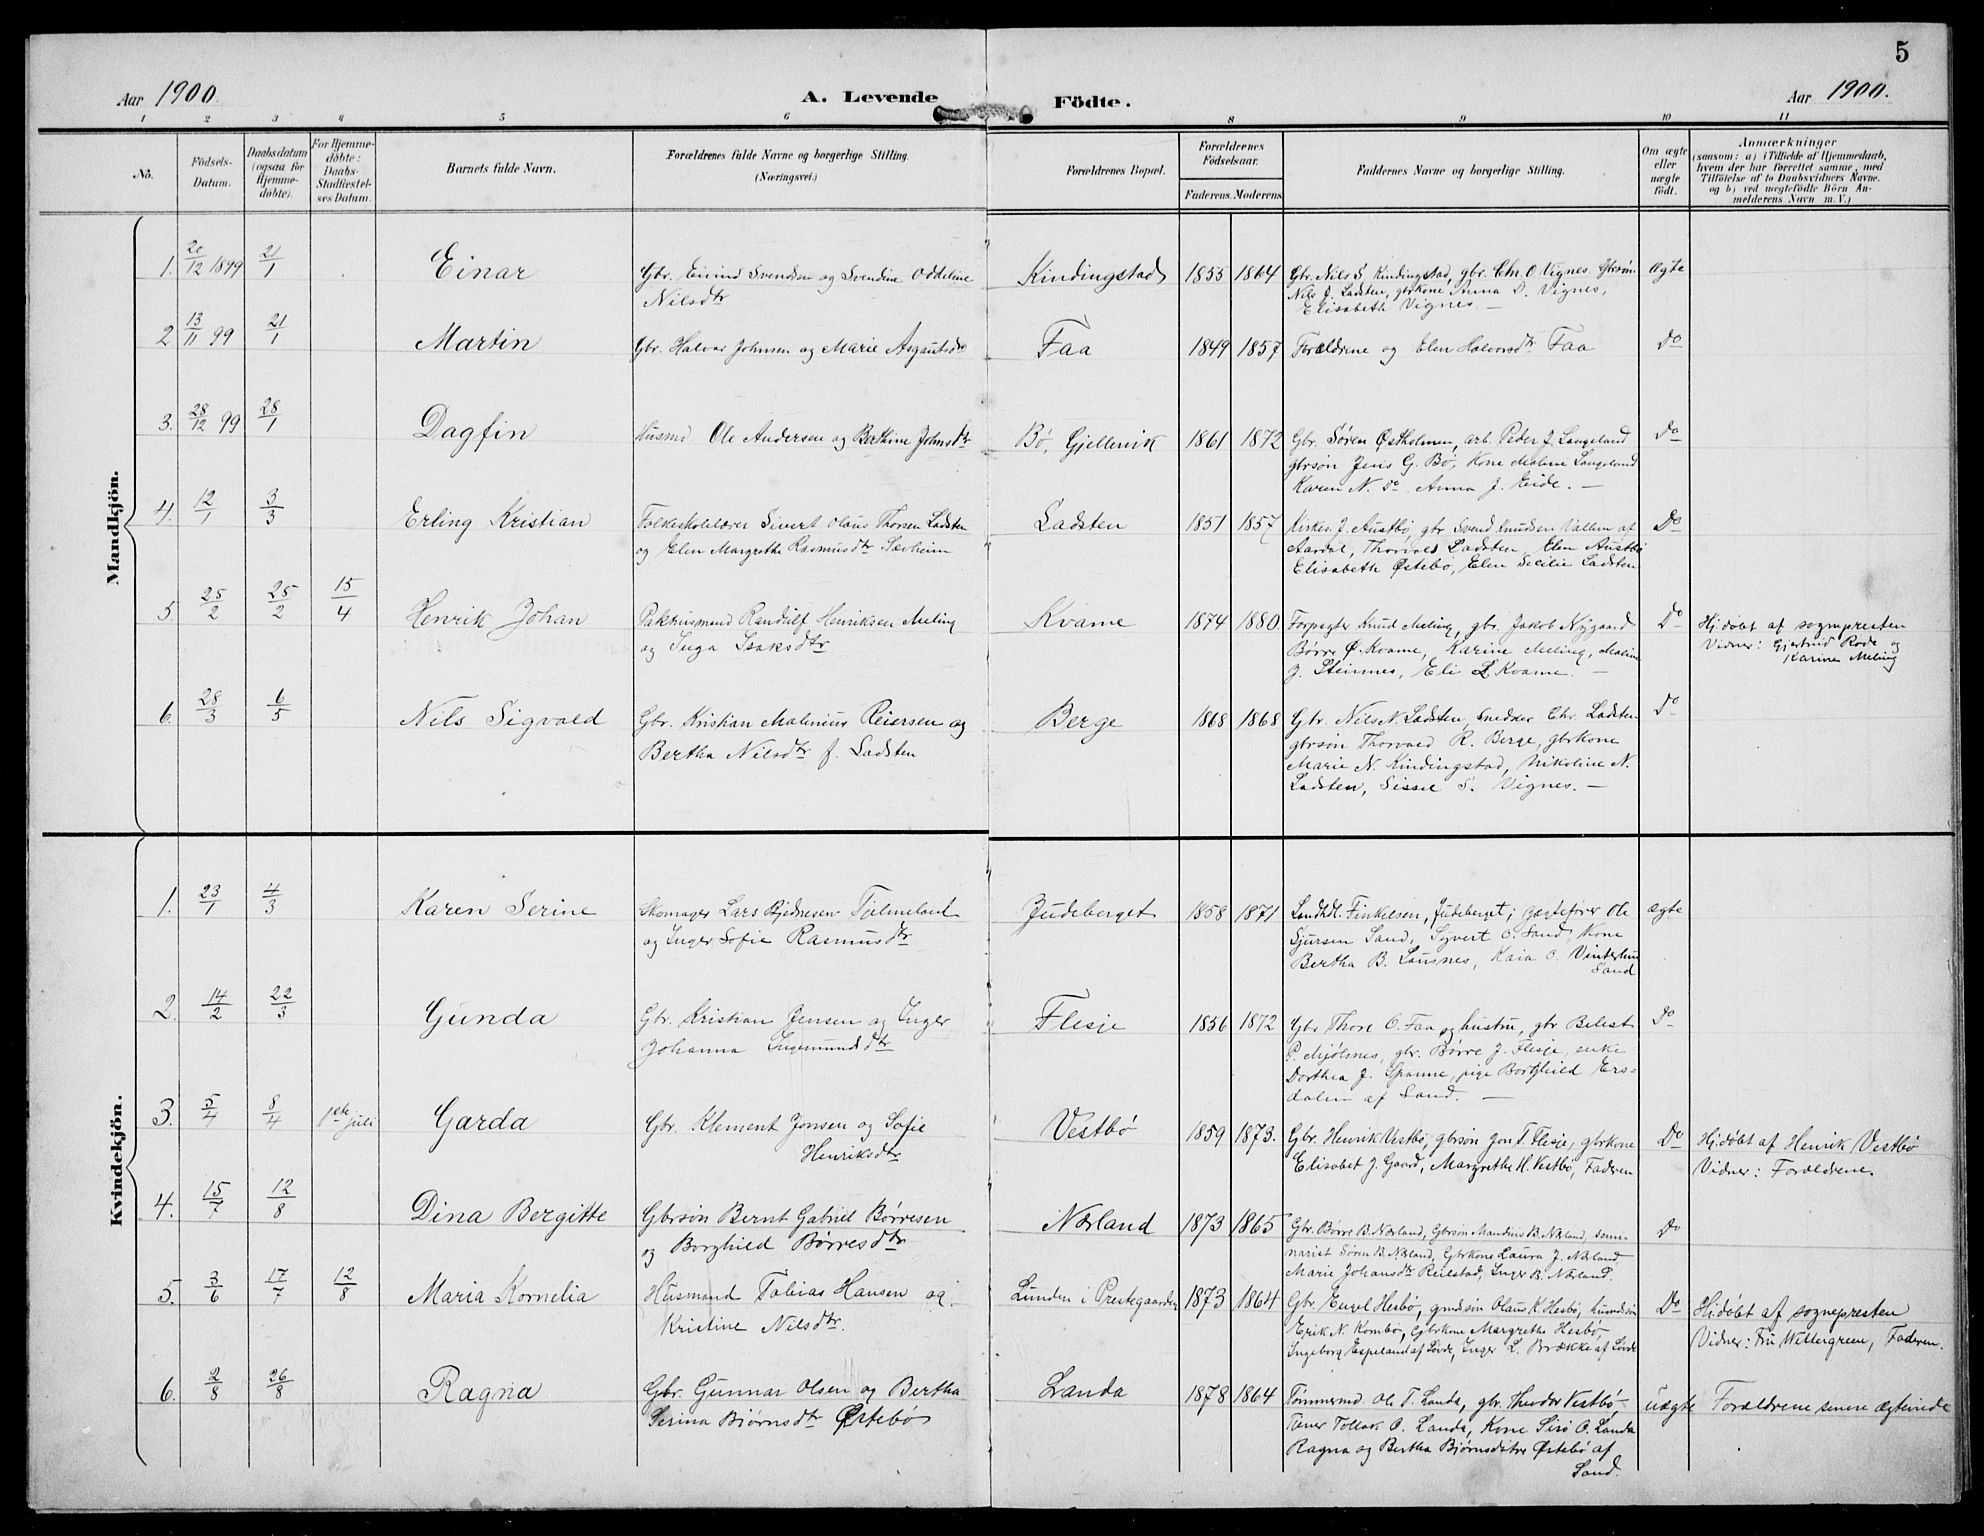 5
Aar 1900.
A. Levende Födte.
Aar 1900.
1 2 3 4 5 6 8 9 10 11
No.
Födsels-
Datum.
Daabsdatum
(ogsaa for
Hjemme-
döbte).
For Hjemme-
döbte:
Daabs-
Stadfæstel-
ses Datum.
Barnets fulde Navn.
Forældrenes fulde Navne og borgerlige Stilling.
(Næringsvei.)
Forældrenes Bopæl.
Forældrenes
Födselsaar.
Faderens. Moderens
Faddernes Navne og borgerlige Stilling.
Om ægte
eller
uægte
födt.
Anmærkninger
(saasom: a) i Tilfælde af Hjemmedaab,
hvem der har forrettet samme, med
Tilföielse af to Daabsvidners Navne.
og b) ved uægtefödte Börn An-
melderens Navn m. V.)
Mandkjön.
1. 20/12 1899 21/1 Einar
Gbr. Eivind Svendsen og Svendine Oddeline
Nilsdtr
Kindingstad 1855 1864
Gbr. Nils S. Kindingstad, gbr. Chr. O Vignes. Gbrsön
Nils J. Ladsten, gbrkone Anna D. Vignes,
Elisabeth Vignes. —
ægte
2 13/11 99 21/1 Martin
Gbr. Halvar Johnsen og Marie Asgautsdtr
Faa 1849 1857
Forældrene og Elen Halvorsdtr Faa
Do
3. 28/12 99 28/1 Dagfin
Husmd Ole Andersen og Berthine Johnsdtr
Bø, Gjellervik 1861 1872
Gbr. Søren Østholmen, arb. Peder J. Langeland
gbrsøn Jens G. Bø, Kone Malene Langeland
Karen N. Do Anna J. Eide. —
Do
4. 12/1 3/3 Erling Kristian
Folkeskolelærer Sivert Olaus Thorsen Ladsten
og Elen Margrethe Rasmusdtr Sævheim
Ladsten 1851 1857
Kirkes. J. Austbø, gbr Svend Knudsen Vallem af
Aardal, Thorvald Ladsten, Elen Austbø
Elisabeth Østebø, Elen Secilie Ladsten
Do
5 25/2 25/2 15/4 Henrik Johan
Pakhusmand Randulf Henriksen Meling
og Inga Isaksdtr
Kvame 1874 1880
Forpagter Knud Meling, gbr. Jakob Nygaard
Børre Ø. Kvame, Karine Meling, Malene
J. Steinnes, Eli L Kvame. —
Do
Hj.døbt af sognepresten
Vidner: Gjertrud Rode og
Karine Meling
6. 28/3 6/5 Nils Sigvald
Gbr. Kristian Malenius Reiersen og
Bertha Nilsdtr f. Ladsten
Berge 1868 1868
Gbr. Nils N. Ladsten, Snedker Chr. Ladsten
gbrsøn Thorvald R. Berge, gbrkone
Marie N. Kindingstad, Nikoline N.
Ladsten, Sissel S. Vignes. —
Do
Kvindekjön.
1. 23/1 4/3 Karen Serine
Skomager Lars Bjednesen Tjelmeland
og Inger Sofie Rasmusdtr
Judeberget 1858 1871
Landhdl. Finkelsen, Judeberget; jægtefører Ole
Sjursen Sand, Syvert O. Sand, Kone
Bertha B. Lausnes, Kaia O. Vinterhun
Sand
ægte
2. 14/2 22/3 Gunda
Gbr. Kristian Jensen og Inger
Johanna Ingemundsdtr
Flesje 1856 1872
Gbr Thore O. Faa og hustru, gbr Belest
P. Mjølsnes, gbr. Børre J. Flesje, enke
Dorthea J. Spanne, pige Borghild Ers-
dalen af Sand. —
Do
3. 5/4 8/4 1ste juli Garda
Gbr. Klement Jonsen og Sofie
Henriksdtr
Vestbø 1859 1873.
Gbr. Henrik Vestbø, gbrsøn Jon T. Flesje, gbrkone
Elisabet J. Gaard, Margrethe H. Vestbø, Faderen
Do
Hj.døbt af Henrik Vestbø
Vidner: Forældrene.
4. 15/7 12/8 Dina Bergitte
Gbrsøn Bernt Gabriel Børresen
og Borghild Børresdtr
Nærland 1873 1865
Gbr. Børre B. Nærland, Gbrsøn Mandius B. Nærland, semi-
narist Søren B. Nærland, Gbrkone Laura J. Nærland
Marie Johansdtr Reilstad, Inger B. Nærland.
Do
5. 3/6 17/7 12/8 Maria Kornelia
Husmand Tobias Hansen og
Kristine Nilsdtr.
Lunden i Prestegaarden 1873 1864
Gbr. Engel Hesbø, gmdsøn Olaus K. Hesbø, husmdsøn
Erik N. Kombø, Gbrkone Margrethe Hesbø,
Ingeborg Espeland af Løvde, Inger L. Brække af Løvde
Do
Hj.døbt af sognepresten
Vidner: Fru Willergreen, Faderen.
6. 2/8 26/8 Ragna
Gbr. Gunnar Olsen og Bertha
Serina Bjørnsdtr Østebø
Landa 1878 1864
Tømmermd Ole T. Landa, gbr. Theodor Vestbø
Tollak O. Landa, Kone Siro O. Landa
Ragna og Bertha Bjørnsdøtre Østebø af
Sand.
uægte
Forældrene senere ægteviede